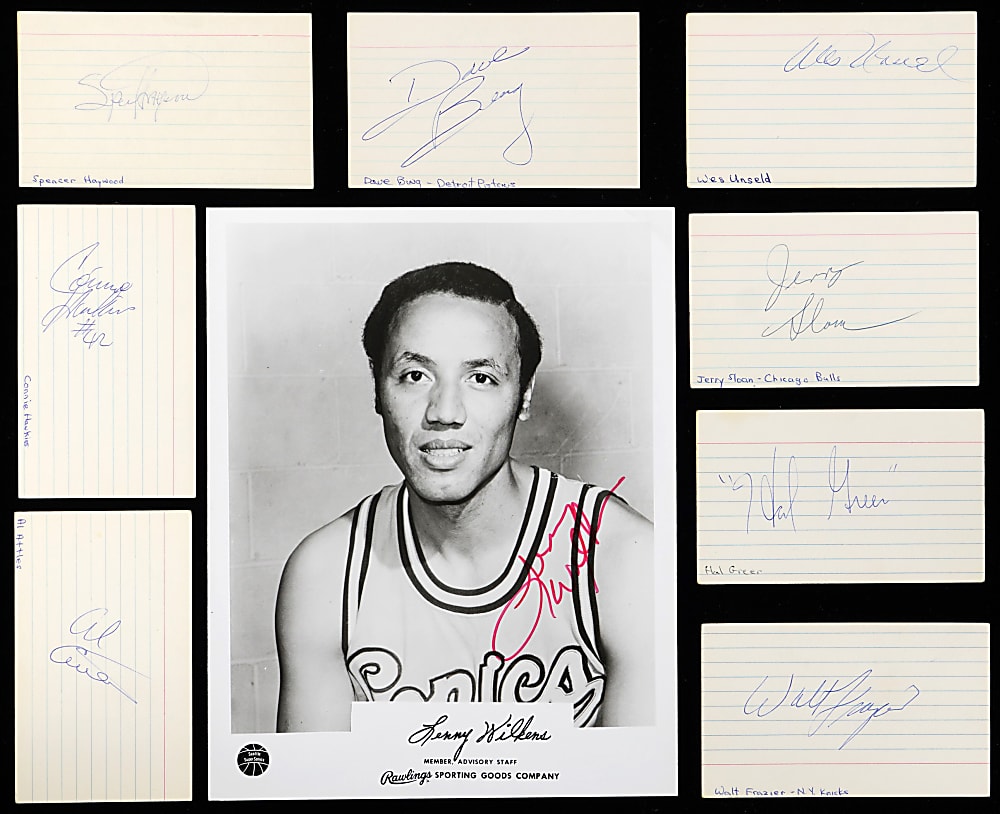 Spencer Haywood
Dave
Bing
Dave Bing - Detroit Pistons
Wes Unseld
Wes Unseld
Connie
Hawkins
#42
Connie Hawkins
Jerry
Sloan
Jerry Sloan - Chicago Bulls
"Hal Greer"
Hal Greer
Al Attles
Al
Attles
Lenny
Wilkens
Sonics
Lenny Wilkens
MEMBER, ADVISORY STAFF
Rawlings SPORTING GOODS COMPANY
Seattle
Super Sonics
Walt Frazier
Walt Frazier - N.Y. Knicks